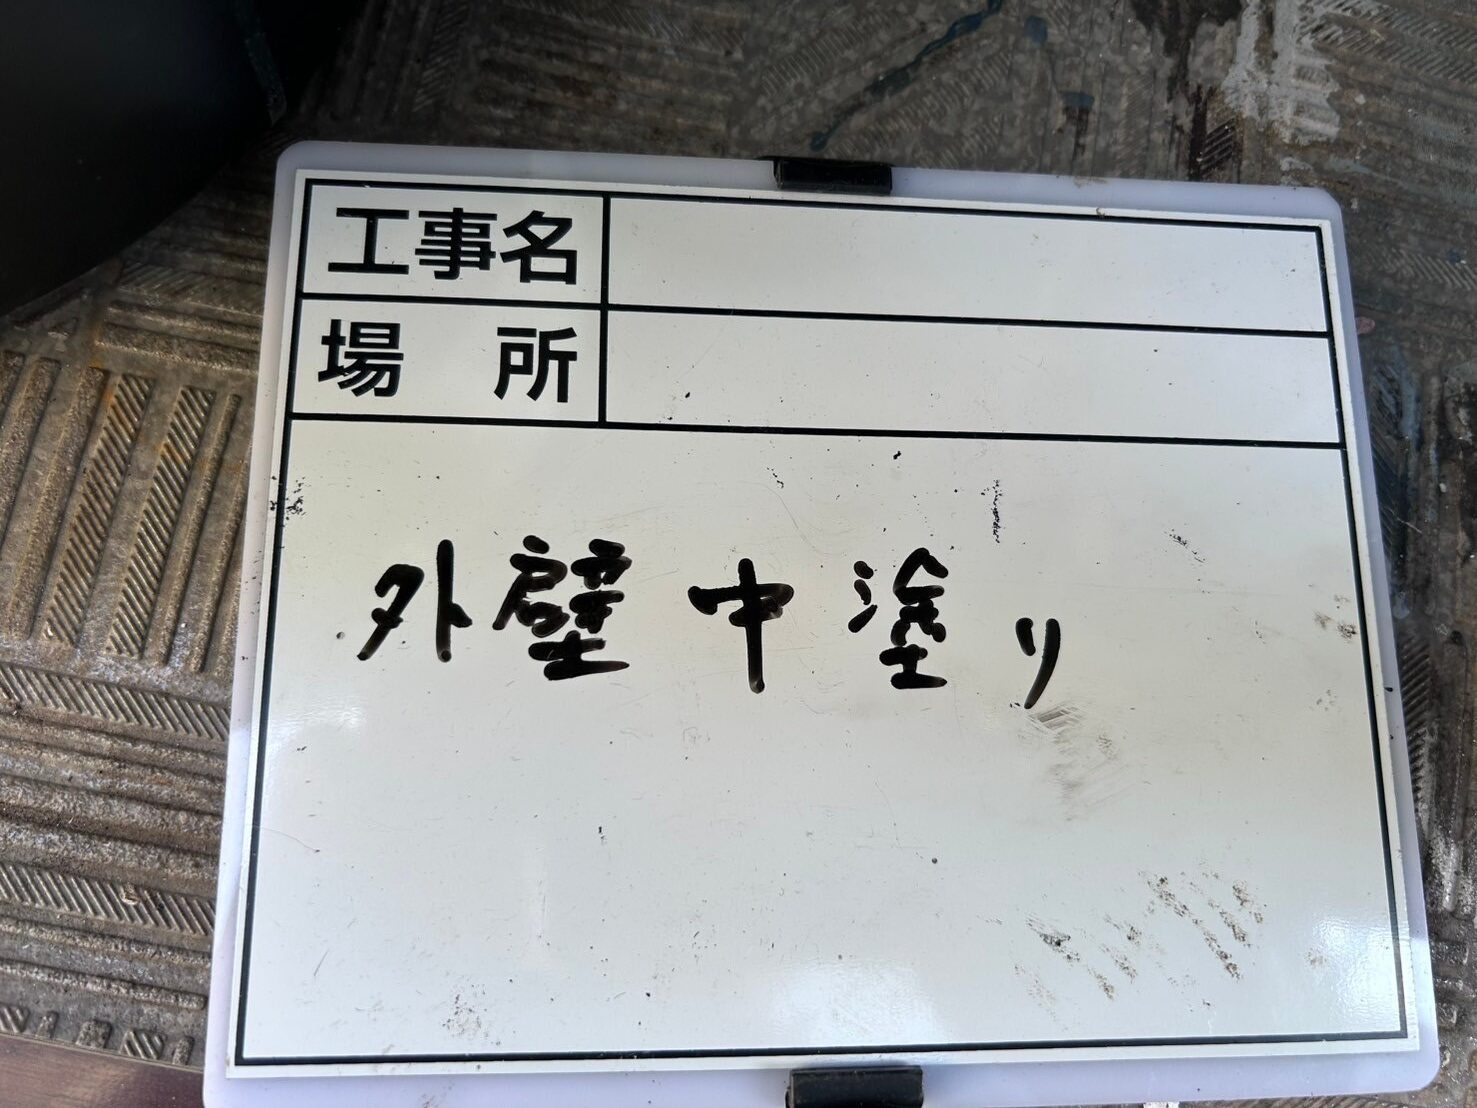 工事名
場所
外壁中塗り